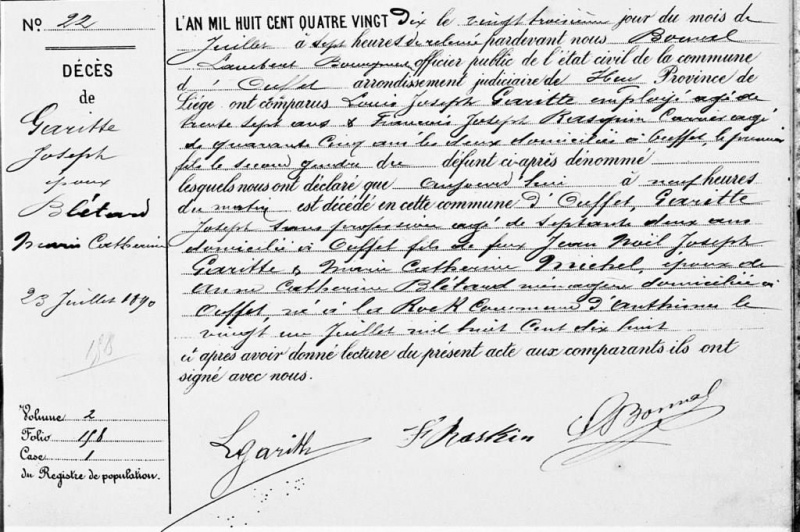 N° 22
DÉCÈS
de
Garitte
Joseph
époux
Blétard
Marie Catherine
23 Juillet 1890
158
Volume 2
Folio 158
Case 1
du Registre de population.
L'AN MIL HUIT CENT QUATRE VINGT Dix le vingt troisième jour du mois de
Juillet à sept heures de relevée pardevant nous Bonnal
Lambert Bourgmestre officier public de l'état civil de la commune
d' Ouffet arrondissement judiciaire de Huy Province de
Liége ont comparus Louis Joseph Garitte employé agé de
trente sept ans & François Joseph Rasquin Carrier agé
de quarante cinq ans les deux domiciliés à Ouffet, le premier
fils le second gendre du défunt ci-après dénommé
lesquels nous ont déclaré que aujourd'hui à neuf heures
du matin est décédé en cette commune d'Ouffet, Garitte
Joseph sans profession agé de septante deux ans
domicilié à Ouffet fils de feux Jean Noël Joseph
Garitte & Marie Catherine Michel, époux de
Anne Catherine Blétard ménagère domiciliée à
Ouffet, né à la Rock Commune d'Anthisnes le
vingt un Juillet mil huit Cent dix huit
et après avoir donné lecture du présent acte aux comparants ils ont
signé avec nous.
LGaritte FRaskin LBonnal